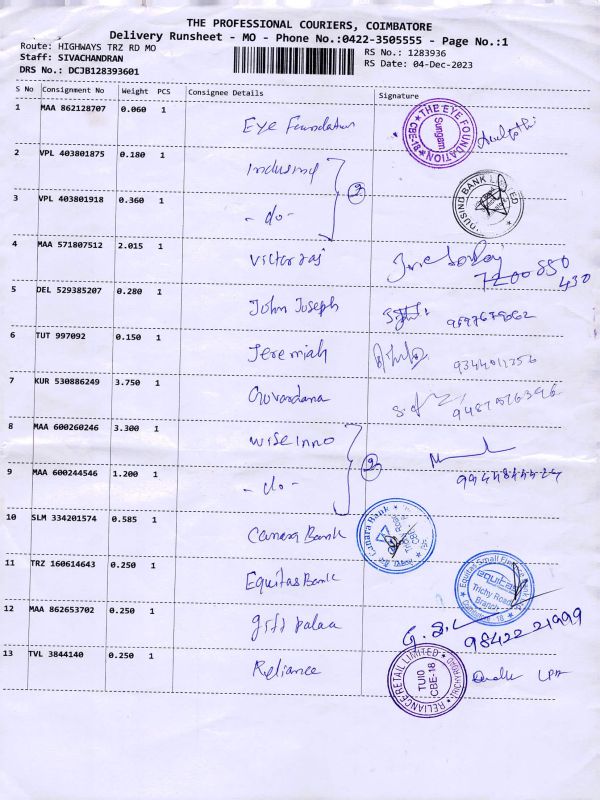 THE PROFESSIONAL COURIERS, COIMBATORE
Delivery Runsheet - MO - Phone No.:0422-3505555 - Page No.:1
Route: HIGHWAYS TRZ RD MO
RS No.: 1283936
Staff: SIVACHANDRAN
RS Date: 04-Dec-2023
DRS No.: DCJB128393601
S No Consignment No Weight PCS Consignee Details Signature
1 MAA 862128707 0.060 1 Eye Foundation
THE EYE FOUNDATION Sungam CBE-18
2 VPL 403801875 0.180 1 Indusind
2
3 VPL 403801918 0.360 1 -do-
INDUSIND BANK LIMITED
4 MAA 571807512 2.015 1 Victor raj
7200 850 430
5 DEL 529385207 0.280 1 John Joseph
6 TUT 997092 0.150 1 Jeremiah
7 KUR 530886249 3.750 1 Govardana
8 MAA 600260246 3.300 1 wise inno
2
9 MAA 600244546 1.200 1 -do-
10 SLM 334201574 0.585 1 Canara Bank
Canara Bank
11 TRZ 160614643 0.250 1 Equitas Bank
Equitas Small Finance Bank
equitas
Trichy Road
Branch
Coimbatore - 18
12 MAA 862653702 0.250 1 gift palaa
98422 21999
13 TVL 3844140 0.250 1 Reliance
RELIANCE RETAIL LIMITED
TUI0
CBE-18